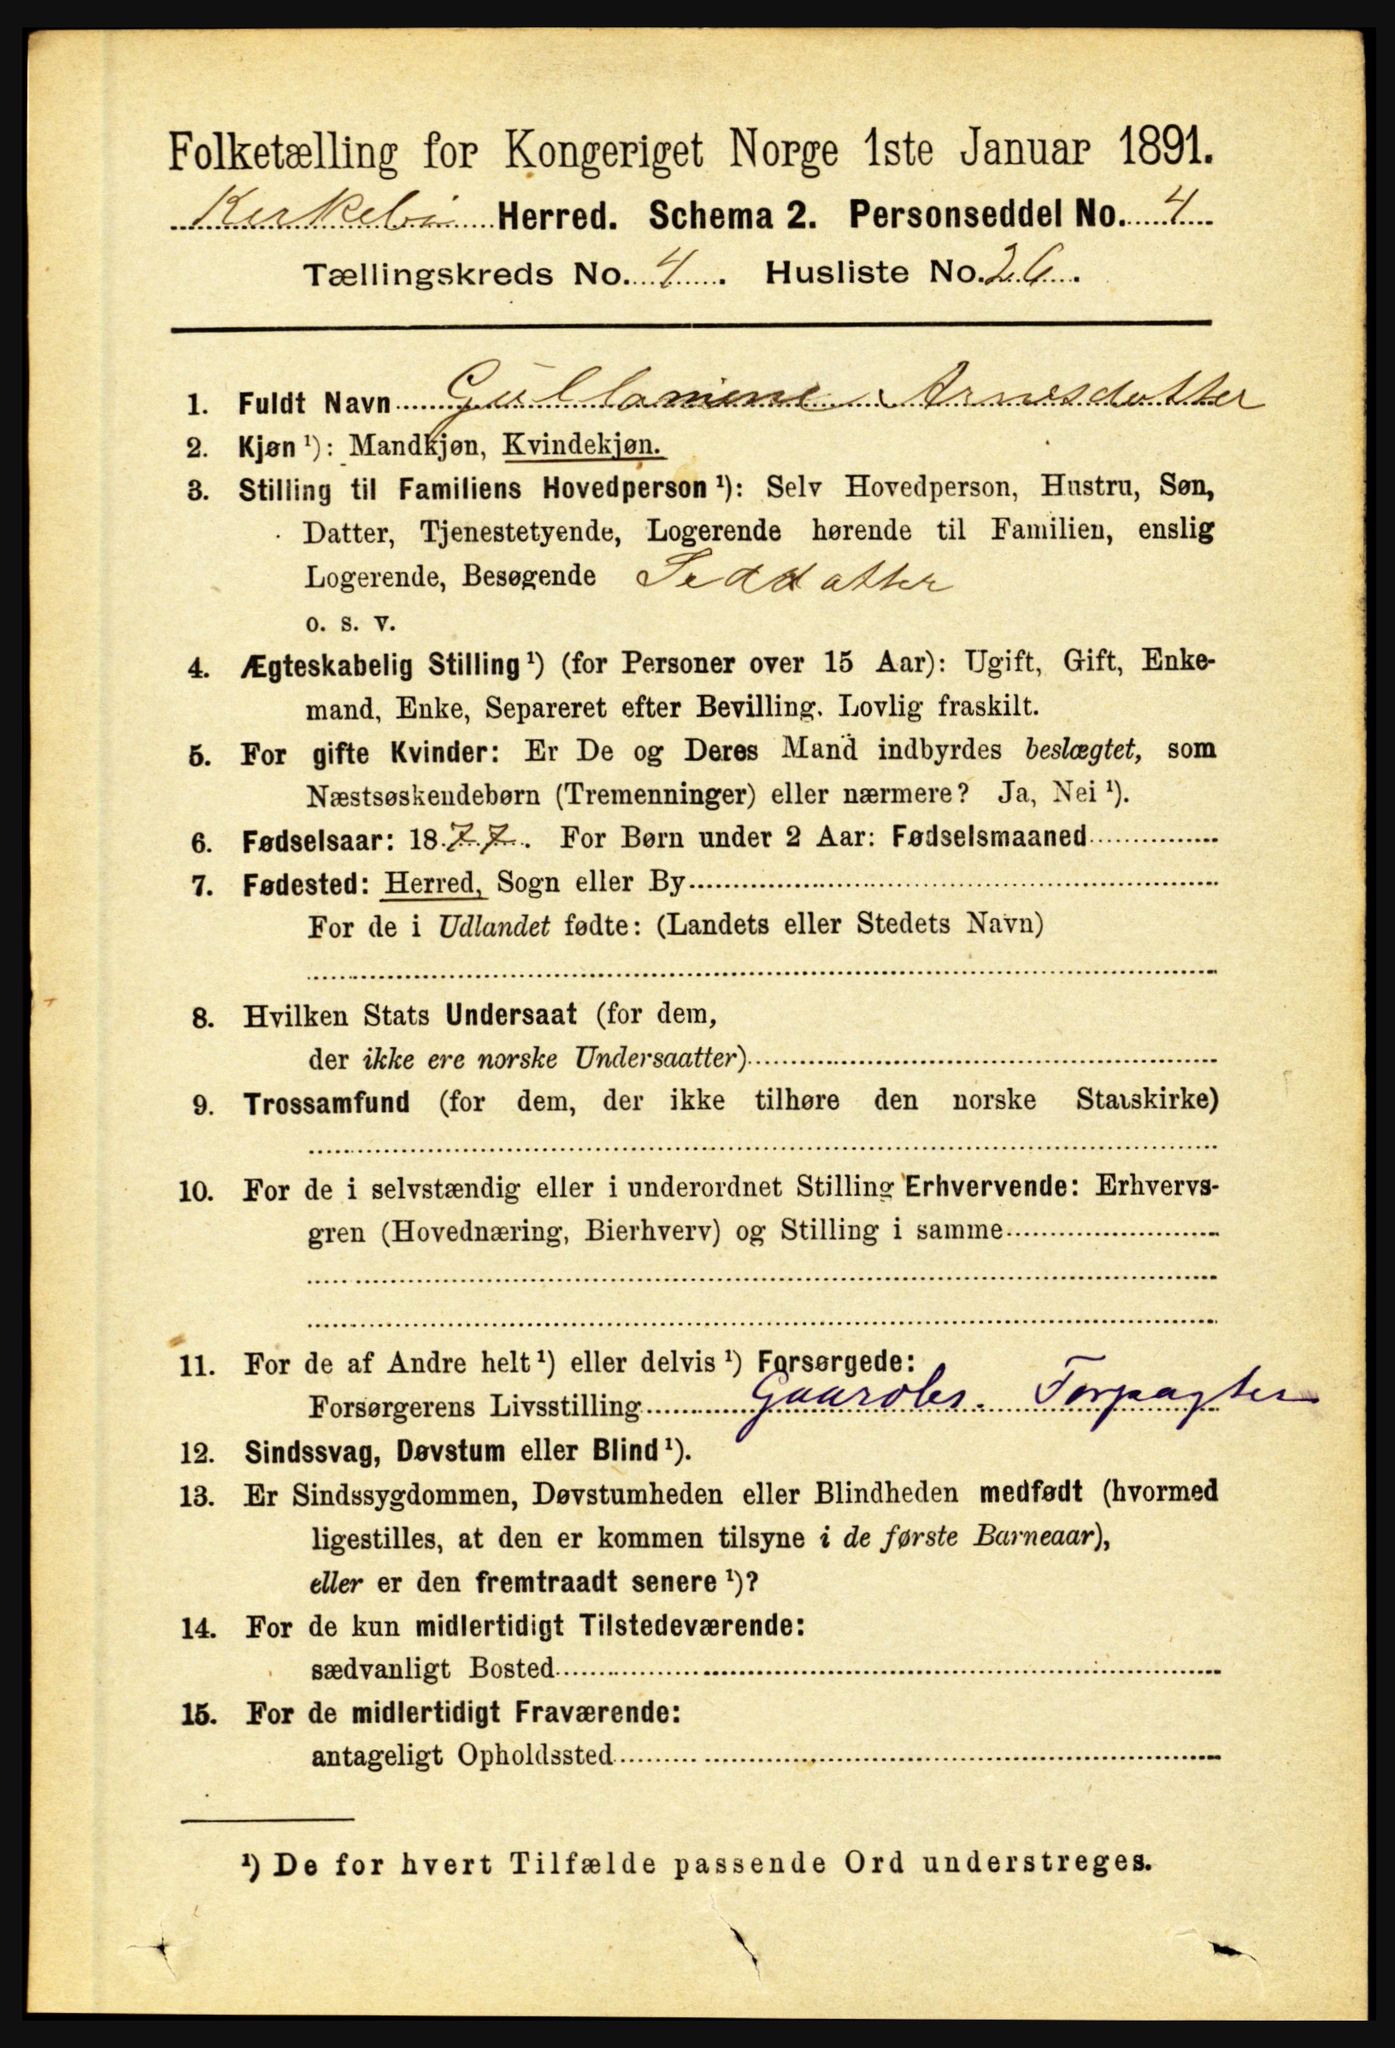 Folketælling for Kongeriget Norge 1ste Januar 1891.
Kirkebø Herred. Schema 2. Personseddel No. 4
Tællingskreds No. 4. Husliste No. 26.
1. Fuldt Navn Gullamine Arnesdatter
2. Kjøn ¹): Mandkjøn, Kvindekjøn.
3. Stilling til Familiens Hovedperson ¹): Selv Hovedperson, Hustru, Søn,
Datter, Tjenestetyende, Logerende hørende til Familien, enslig
Logerende, Besøgende
o. s. v.
4. Ægteskabelig Stilling ¹) (for Personer over 15 Aar): Ugift, Gift, Enke-
mand, Enke, Separeret efter Bevilling. Lovlig fraskilt.
5. For gifte Kvinder: Er De og Deres Mand indbyrdes beslægtet, som
Næstsøskendebørn (Tremenninger) eller nærmere? Ja, Nei ¹).
6. Fødselsaar: 1877. For Børn under 2 Aar: Fødselsmaaned
7. Fødested: Herred, Sogn eller By
For de i Udlandet fødte: (Landets eller Stedets Navn)
8. Hvilken Stats Undersaat (for dem,
der ikke ere norske Undersaatter)
9. Trossamfund (for dem, der ikke tilhøre den norske Statskirke)
10. For de i selvstændig eller i underordnet Stilling Erhvervende: Erhvervs-
gren (Hovednæring, Bierhverv) og Stilling i samme
11. For de af Andre helt ¹) eller delvis ¹) Forsørgede:
Forsørgerens Livsstilling Gaardbr. Forpagter
12. Sindssvag, Døvstum eller Blind ¹).
13. Er Sindssygdommen, Døvstumheden eller Blindheden medfødt (hvormed
ligestilles, at den er kommen tilsyne i de første Barneaar),
eller er den fremtraadt senere ¹)?
14. For de kun midlertidigt Tilstedeværende:
sædvanligt Bosted
15. For de midlertidigt Fraværende:
antageligt Opholdssted
¹) De for hvert Tilfælde passende Ord understreges.